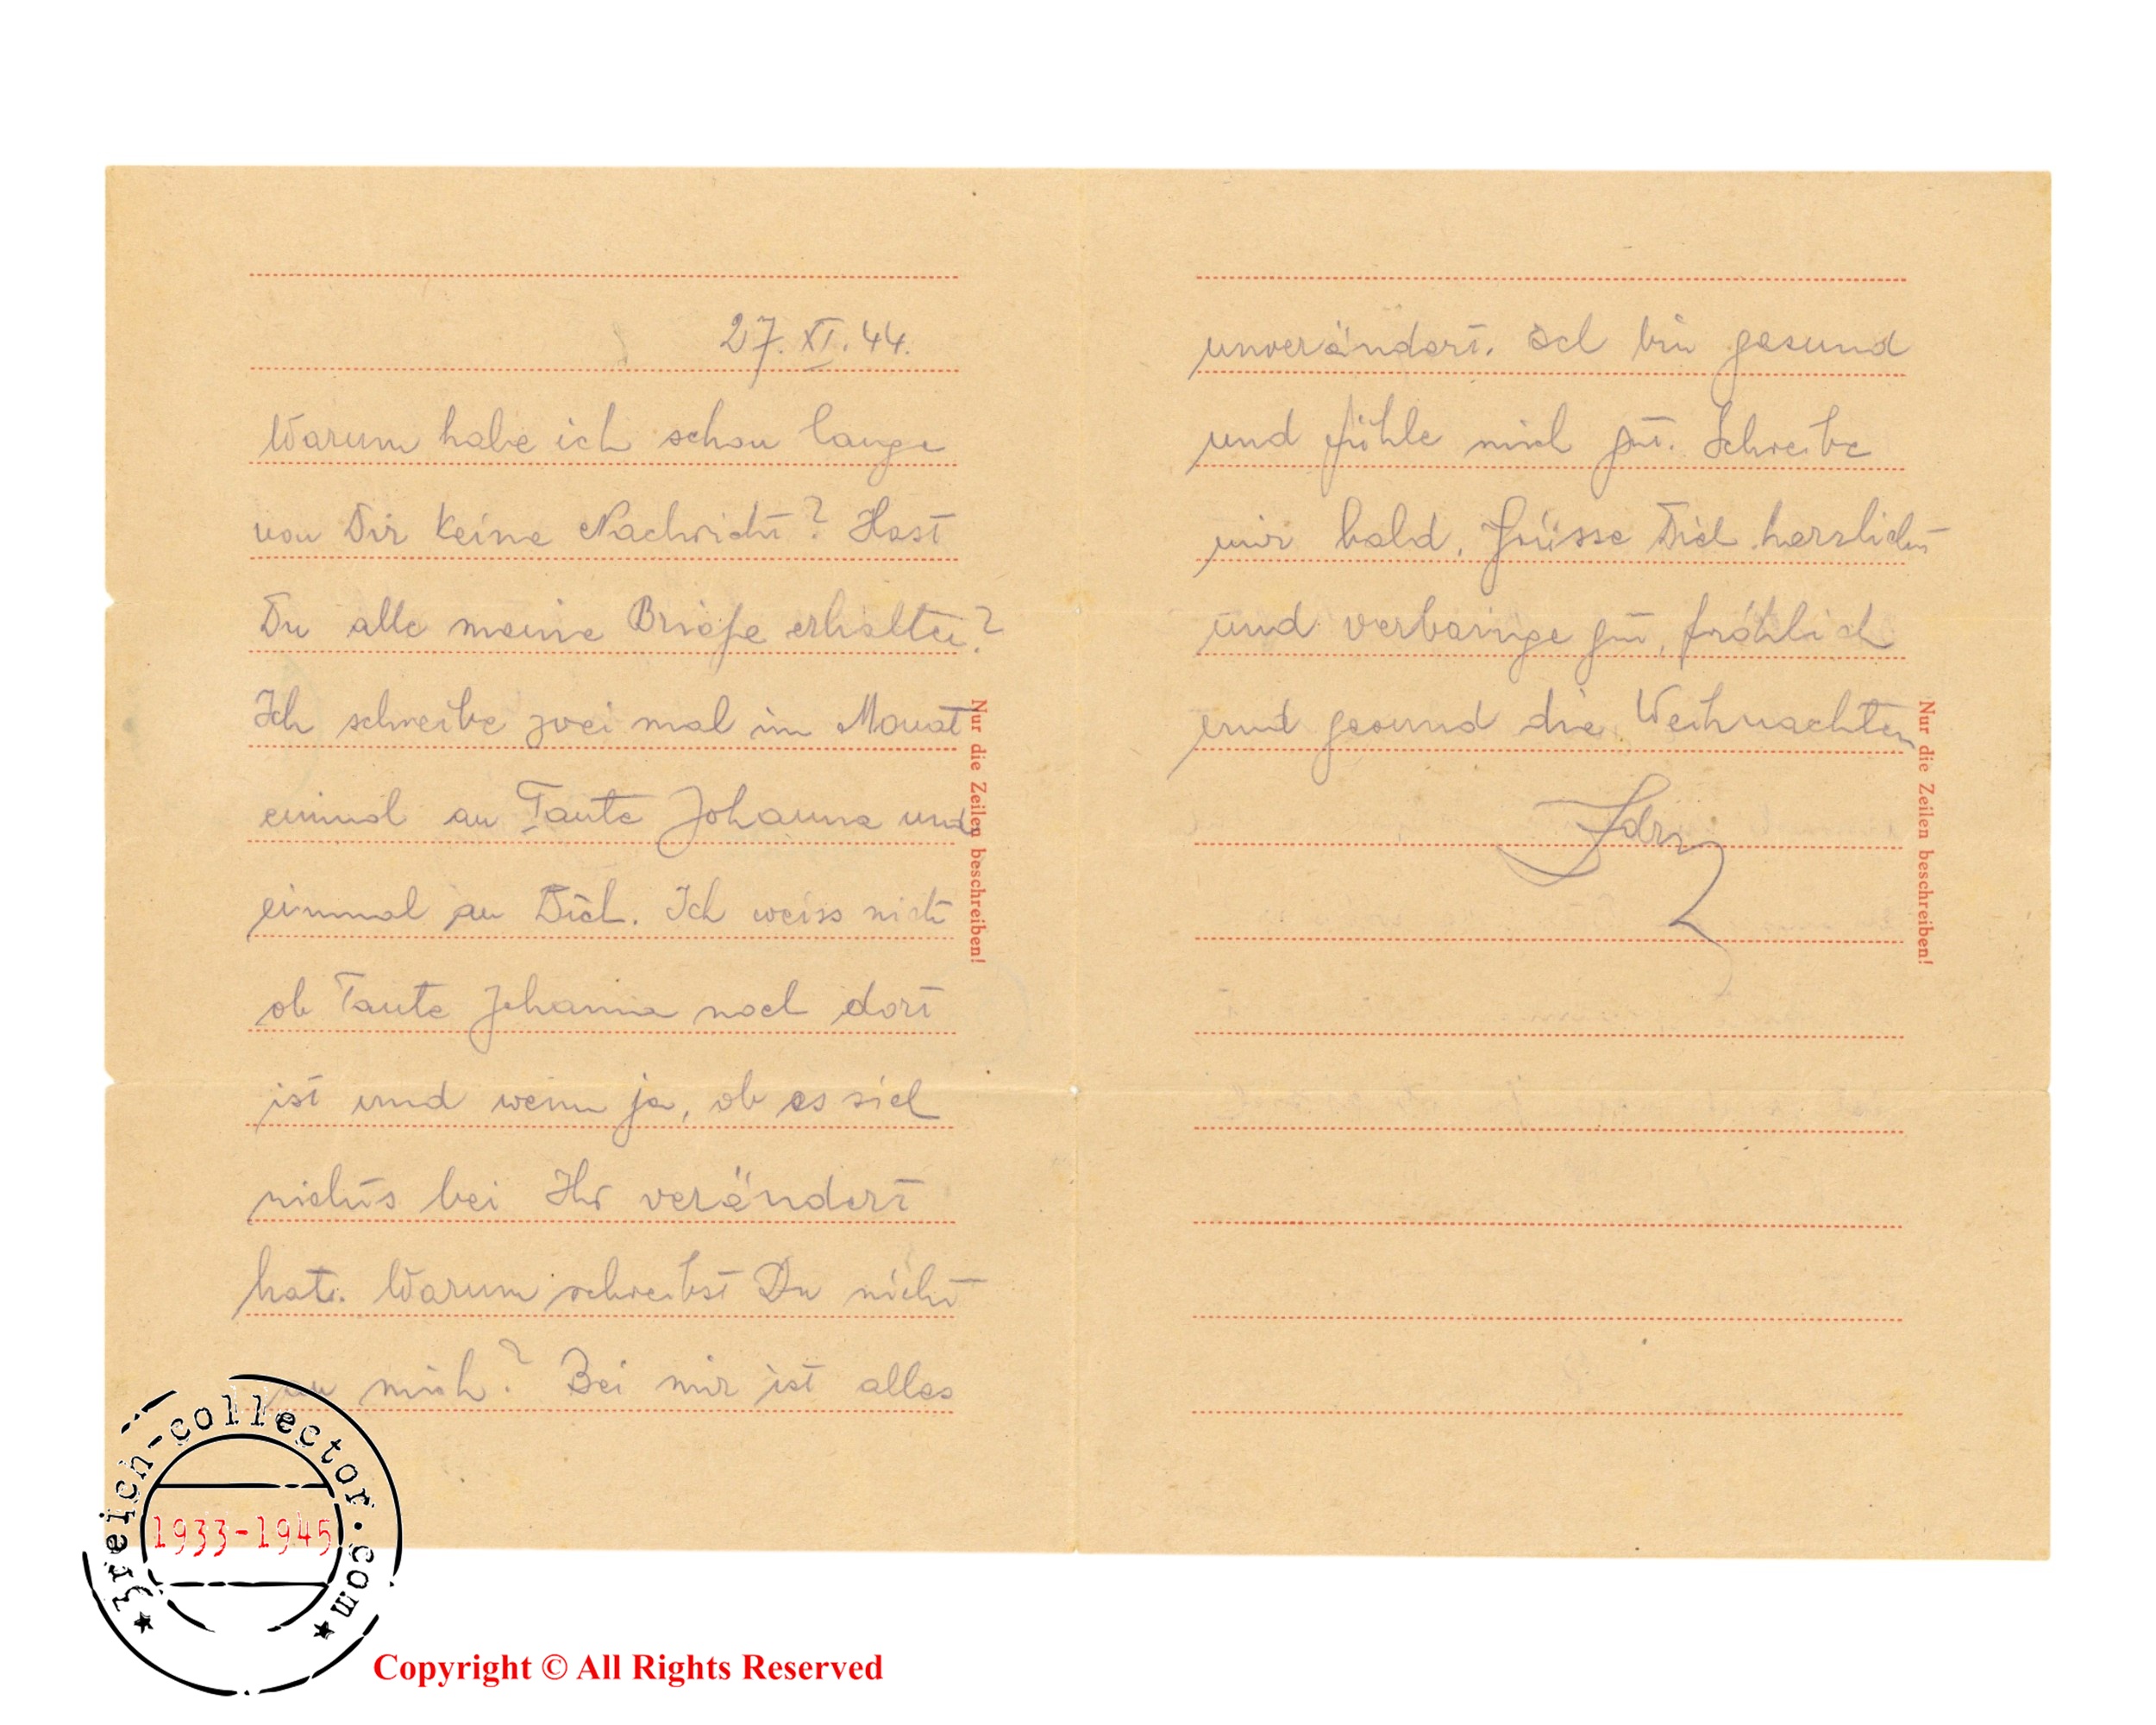 27. XI. 44.
Warum habe ich schon lange
von Dir keine Nachricht? Hast
Du alle meine Briefe erhalten?
Ich schreibe zwei mal im Monat
einmal an Tante Johanna und
einmal an Dich. Ich weiss nicht
ob Tante Johanna noch dort
ist und wenn ja, ob es sich
nichts bei Ihr verändert
hat. Warum schreibst Du nicht
an mich? Bei mir ist alles
Nur die Zeilen beschreiben!
unverändert. Ich bin gesund
und fühle mich gut. Schreibe
mir bald. Grüsse Dich herzlichst
und verbringe gut, fröhlich
und gesund die Weihnachten
Nur die Zeilen beschreiben!
reich-collector.com
1933-1945
Copyright © All Rights Reserved